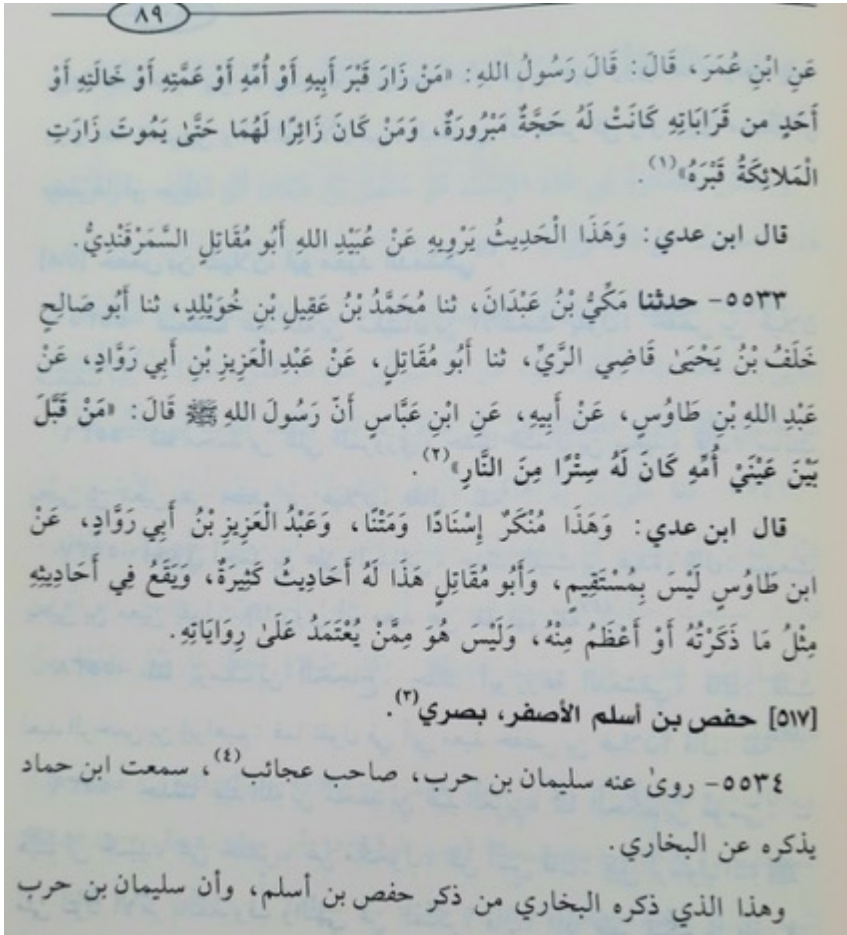 ٨٩
عَنِ ابْنِ عُمَرَ، قَالَ: قَالَ رَسُولُ اللهِ: «مَنْ زَارَ قَبْرَ أَبِيهِ أَوْ أُمِّهِ أَوْ عَمَّتِهِ أَوْ خَالَتِهِ أَوْ
أَحَدٍ من قَرَابَاتِهِ كَانَتْ لَهُ حَجَّةٌ مَبْرُورَةٌ، وَمَنْ كَانَ زَائِرًا لَهُمَا حَتَّىٰ يَمُوتَ زَارَتِ
الْمَلائِكَةُ قَبْرَهُ»(١).
قال ابن عدي: وَهَذَا الْحَدِيثُ يَرْوِيهِ عَنْ عُبَيْدِ اللهِ أَبُو مُقَاتِلٍ السَّمَرْقَنْدِيُّ.
٥٥٣٣- حدثنا مَكِّيُّ بْنُ عَبْدَانَ، ثنا مُحَمَّدُ بْنُ عَقِيلِ بْنِ خُوَيْلِدٍ، ثنا أَبُو صَالِحٍ
خَلَفُ بْنُ يَحْيَىٰ قَاضِي الرَّيِّ، ثنا أَبُو مُقَاتِلٍ، عَنْ عَبْدِ الْعَزِيزِ بْنِ أَبِي رَوَّادٍ، عَنْ
عَبْدِ اللهِ بْنِ طَاوُسٍ، عَنْ أَبِيهِ، عَنِ ابْنِ عَبَّاسٍ أَنّ رَسُولَ اللهِ ﷺ قَالَ: «مَنْ قَبَّلَ
بَيْنَ عَيْنَيْ أُمِّهِ كَانَ لَهُ سِتْرًا مِنَ النَّارِ»(٢).
قال ابن عدي: وَهَذَا مُنْكَرٌ إِسْنَادًا وَمَتْنًا، وَعَبْدُ الْعَزِيزِ بْنُ أَبِي رَوَّادٍ، عَنْ
ابن طَاوُسٍ لَيْسَ بِمُسْتَقِيمٍ، وَأَبُو مُقَاتِلٍ هَذَا لَهُ أَحَادِيثُ كَثِيرَةٌ، وَيَقَعُ فِي أَحَادِيثِهِ
مِثْلُ مَا ذَكَرْتُهُ أَوْ أَعْظَمُ مِنْهُ، وَلَيْسَ هُوَ مِمَّنْ يُعْتَمَدُ عَلَىٰ رِوَايَاتِهِ.
[٥١٧] حفص بن أسلم الأصفر، بصري(٣).
٥٥٣٤- روىٰ عنه سليمان بن حرب، صاحب عجائب(٤)، سمعت ابن حماد
يذكره عن البخاري.
وهذا الذي ذكره البخاري من ذكر حفص بن أسلم، وأن سليمان بن حرب